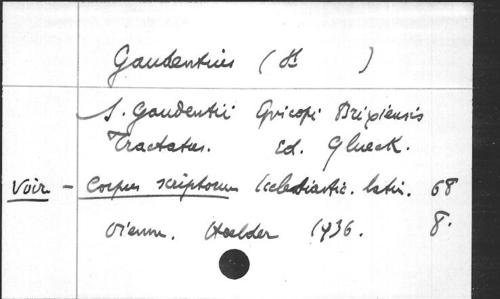 Gaudentius (St )
S. Gaudentii Episcopi Brixiensis
Tractatus. Ed. Glueck.
Voir - Corpus scriptorum Ecclesiastic. latin. 68
Vienne. Hoelder 1936. 8.